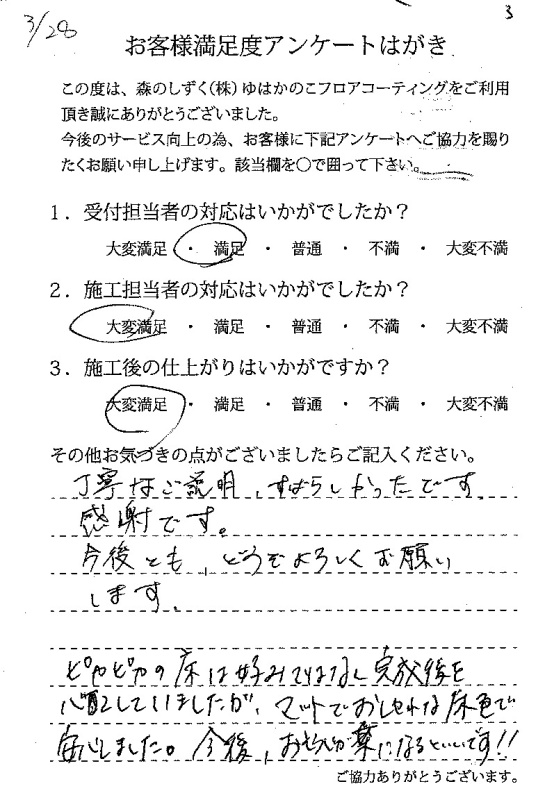 3/28
3
お客様満足度アンケートはがき
この度は、森のしずく(株)ゆはかのこフロアコーティングをご利用
頂き誠にありがとうございました。
今後のサービス向上の為、お客様に下記アンケートへご協力を賜り
たくお願い申し上げます。該当欄を○で囲って下さい。
1．受付担当者の対応はいかがでしたか？
大変満足 ・ 満足 ・ 普通 ・ 不満 ・ 大変不満
2．施工担当者の対応はいかがでしたか？
大変満足 ・ 満足 ・ 普通 ・ 不満 ・ 大変不満
3．施工後の仕上がりはいかがですか？
大変満足 ・ 満足 ・ 普通 ・ 不満 ・ 大変不満
その他お気づきの点がございましたらご記入ください。
丁寧なご説明、すばらしかったです。
感謝です。
今後とも、どうぞよろしくお願い
します。
ピカピカの床は好みではなく完成後を
心配していましたが、マットでおしゃれな床色で
安心しました。今後、おそうじが楽になるといいです!!
ご協力ありがとうございます。